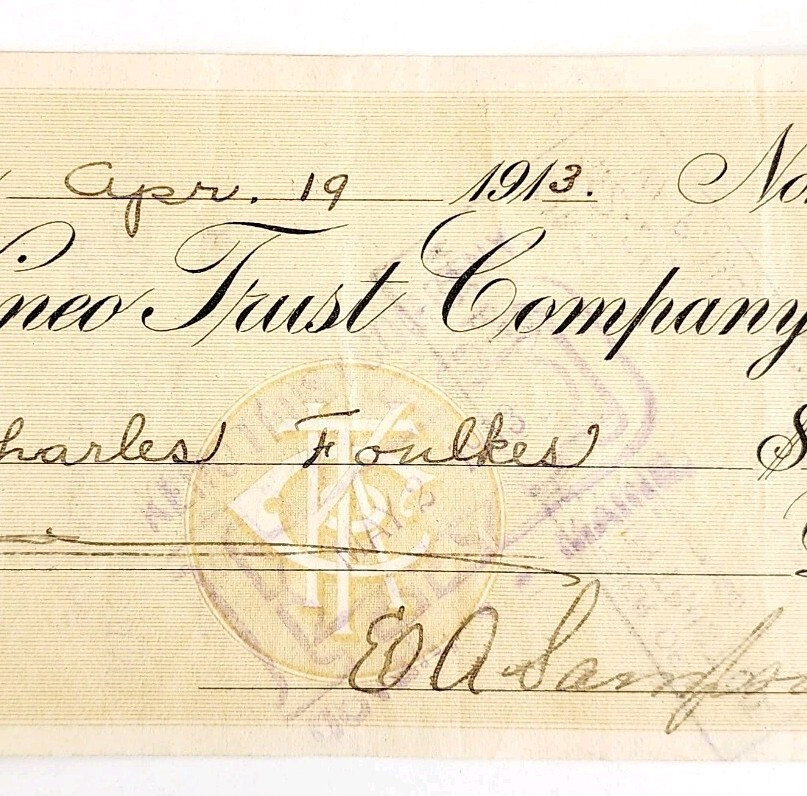 Apr. 19 1913. No
ineo Trust Company
harles Foulkes $
MAY 2
E A Sampso